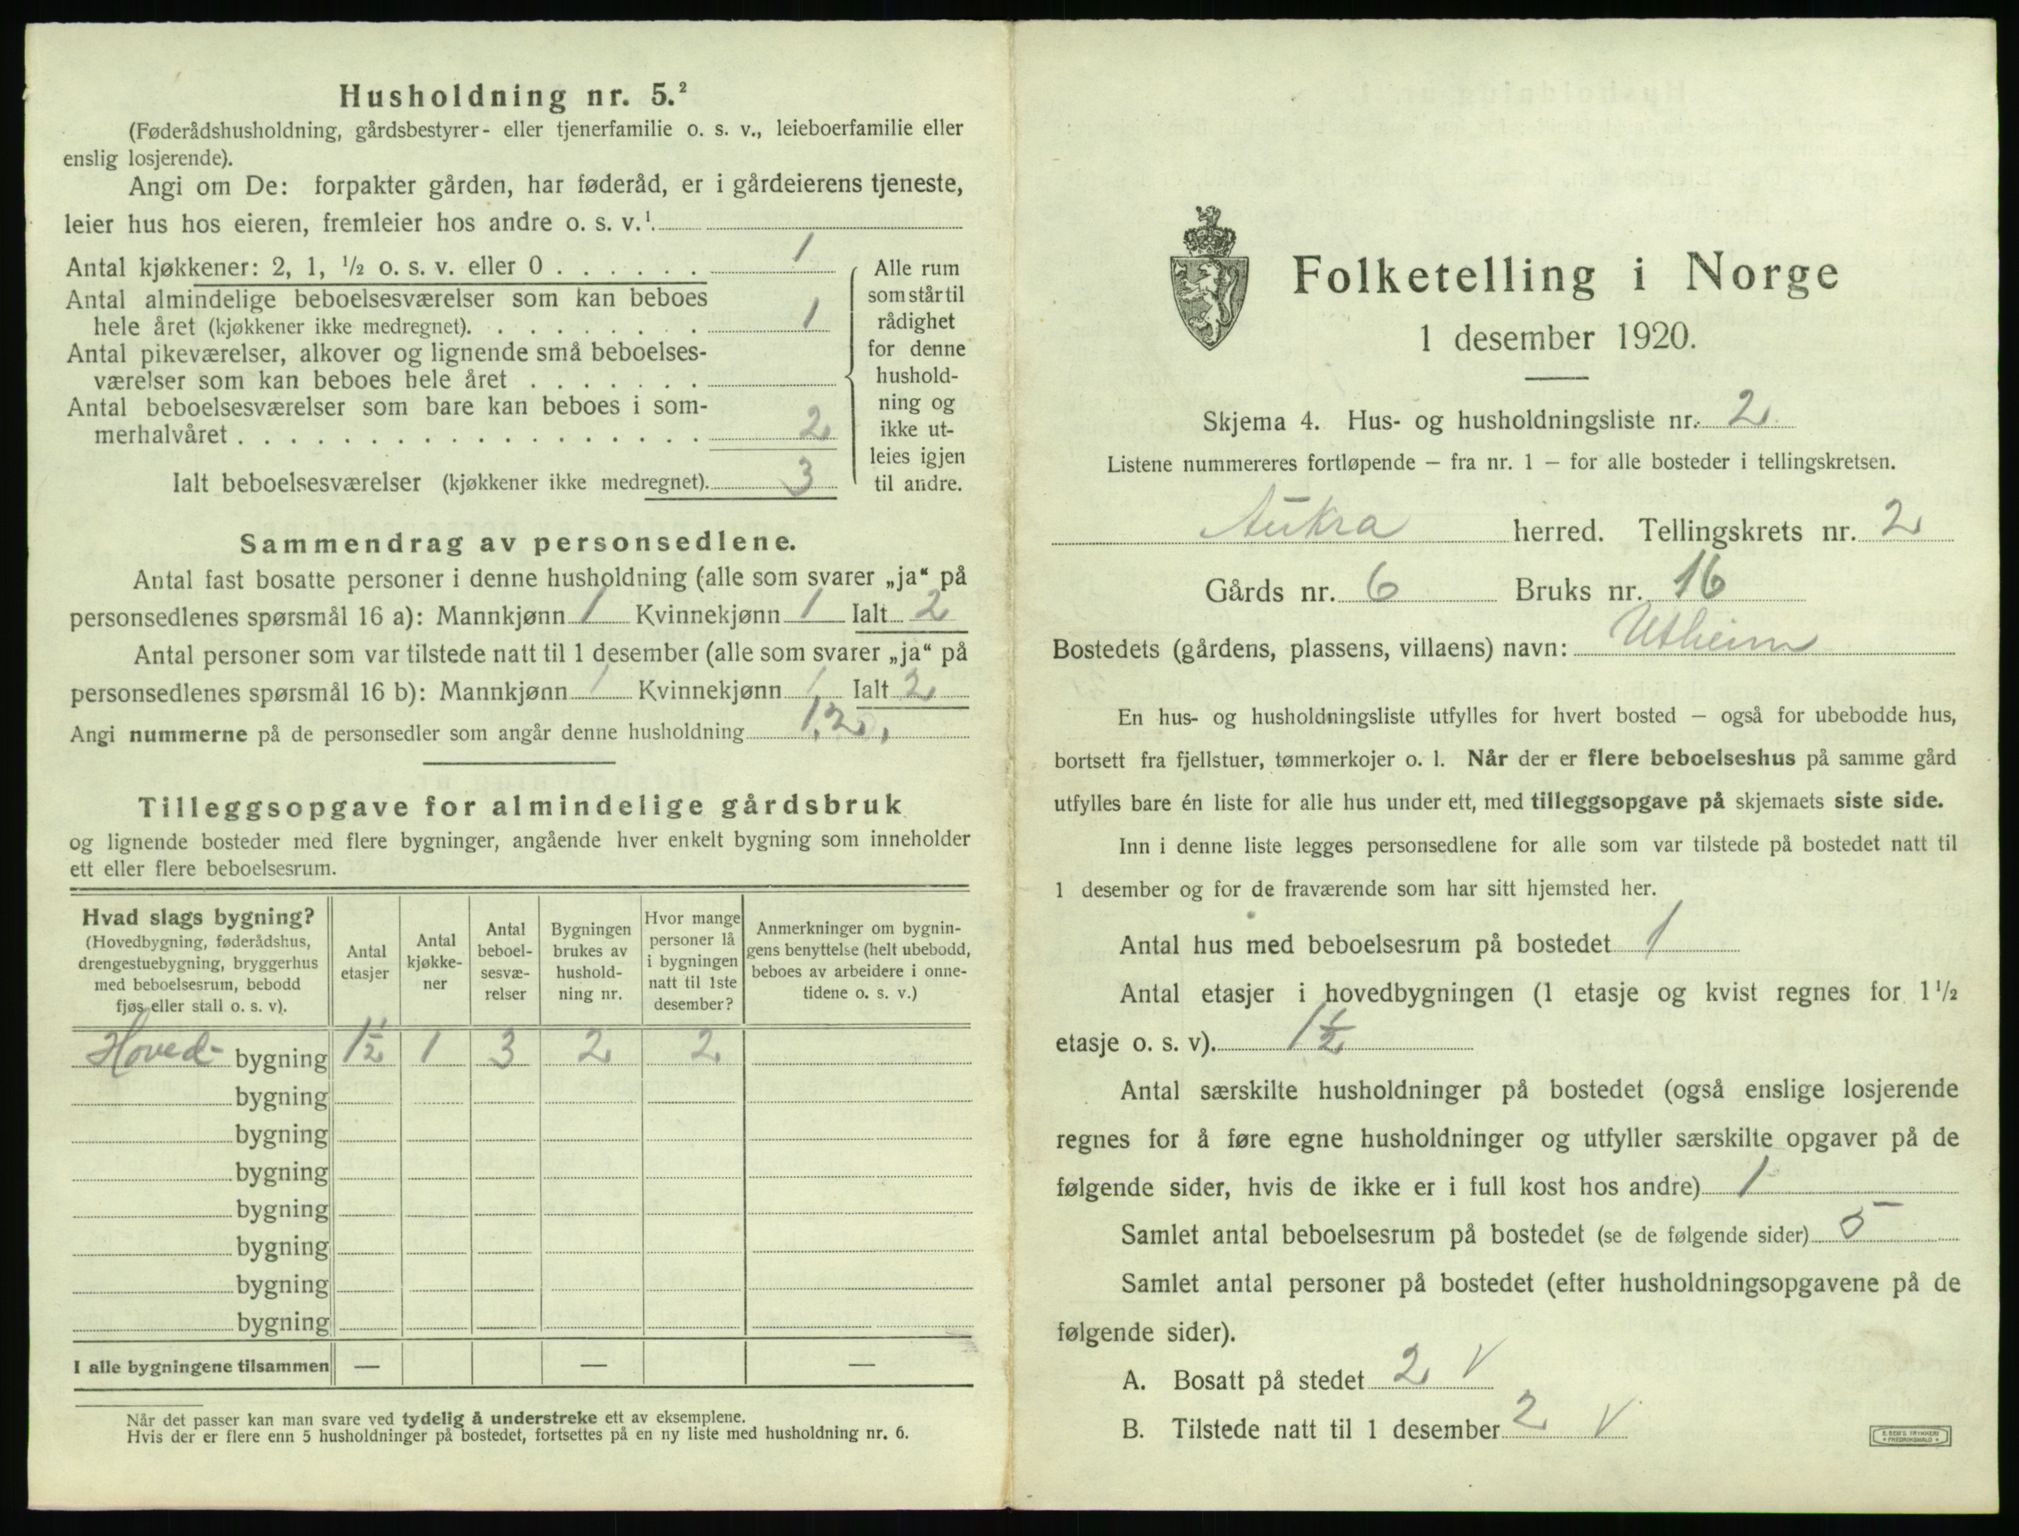 Husholdning nr. 5.²
(Føderådshusholdning, gårdsbestyrer- eller tjenerfamilie o. s. v., leieboerfamilie eller
enslig losjerende).
Angi om De: forpakter gården, har føderåd, er i gårdeierens tjeneste,
leier hus hos eieren, fremleier hos andre o. s. v.¹
Antal kjøkkener: 2, 1, ½ o. s. v. eller 0 . . . . . . 1
Antal almindelige beboelsesværelser som kan beboes
hele året (kjøkkener ikke medregnet). . . . . . . . . 1
Antal pikeværelser, alkover og lignende små beboelses-
værelser som kan beboes hele året . . . . . . .
Antal beboelsesværelser som bare kan beboes i som-
merhalvåret . . . . . . . . . . . . . . . . . . 2
Ialt beboelsesværelser (kjøkkener ikke medregnet). 3
Alle rum
som står til
rådighet
for denne
hushold-
ning og
ikke ut-
leies igjen
til andre.
Sammendrag av personsedlene.
Antal fast bosatte personer i denne husholdning (alle som svarer „ja“ på
personsedlenes spørsmål 16 a): Mannkjønn 1 Kvinnekjønn 1 Ialt 2
Antal personer som var tilstede natt til 1 desember (alle som svarer „ja“ på
personsedlenes spørsmål 16 b): Mannkjønn 1 Kvinnekjønn 1 Ialt 2
Angi nummerne på de personsedler som angår denne husholdning 1,2,
Tilleggsopgave for almindelige gårdsbruk
og lignende bosteder med flere bygninger, angående hver enkelt bygning som inneholder
ett eller flere beboelsesrum.
Hvad slags bygning?
(Hovedbygning, føderådshus,
drengestuebygning, bryggerhus
med beboelsesrum, bebodd
fjøs eller stall o. s. v).
Antal
etasjer
Antal
kjøkke-
ner
Antal
beboel-
sesvæ-
relser
Bygningen
brukes av
hushold-
ning nr.
Hvor mange
personer lå
i bygningen
natt til 1ste
desember?
Anmerkninger om bygnin-
gens benyttelse (helt ubebodd,
beboes av arbeidere i onne-
tidene o. s. v.)
Hoved- bygning 1½ 1 3 2 2
bygning
bygning
bygning
bygning
bygning
bygning
bygning
I alle bygningene tilsammen — — —
Når det passer kan man svare ved tydelig å understreke ett av eksemplene.
Hvis der er flere enn 5 husholdninger på bostedet, fortsettes på en ny liste med husholdning nr. 6.
Folketelling i Norge
1 desember 1920.
Skjema 4. Hus- og husholdningsliste nr. 2
Listene nummereres fortløpende – fra nr. 1 – for alle bosteder i tellingskretsen.
Aukra herred. Tellingskrets nr. 2
Gårds nr. 6 Bruks nr. 16
Bostedets (gårdens, plassens, villaens) navn: Utheim
En hus- og husholdningsliste utfylles for hvert bosted – også for ubebodde hus,
bortsett fra fjellstuer, tømmerkojer o. l. Når der er flere beboelseshus på samme gård
utfylles bare én liste for alle hus under ett, med tilleggsopgave på skjemaets siste side.
Inn i denne liste legges personsedlene for alle som var tilstede på bostedet natt til
1 desember og for de fraværende som har sitt hjemsted her.
Antal hus med beboelsesrum på bostedet 1
Antal etasjer i hovedbygningen (1 etasje og kvist regnes for 1½
etasje o. s. v). 1½
Antal særskilte husholdninger på bostedet (også enslige losjerende
regnes for å føre egne husholdninger og utfyller særskilte opgaver på de
følgende sider, hvis de ikke er i full kost hos andre) 1
Samlet antal beboelsesrum på bostedet (se de følgende sider) 5
Samlet antal personer på bostedet (efter husholdningsopgavene på de
følgende sider).
A. Bosatt på stedet 2 V
B. Tilstede natt til 1 desember 2 V